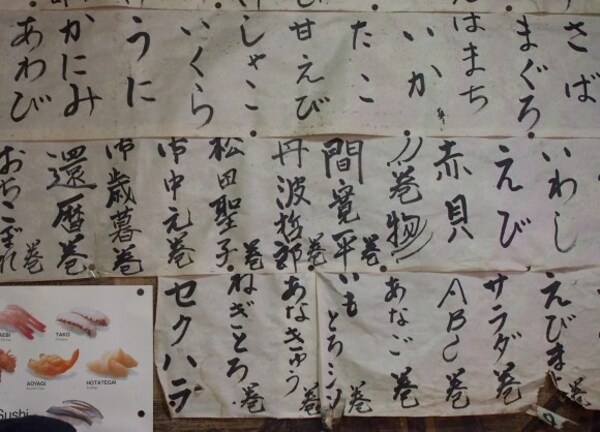 さば
まぐろ
はまち
いか
たこ
甘えび
しゃこ
いくら
うに
かにみ
あわび
いわし
えび
赤貝
巻物
間寛平巻
丹波哲郎巻
松田聖子巻
御中元巻
御歳暮巻
還暦巻
おちこぼれ巻
えびま巻
サラダ巻
ABC巻
あなご巻
いもとろシソ巻
あなきゅう巻
ねぎとろ巻
セクハラ
TAKO
AOYAGI
HOTATEGAI
Sushi